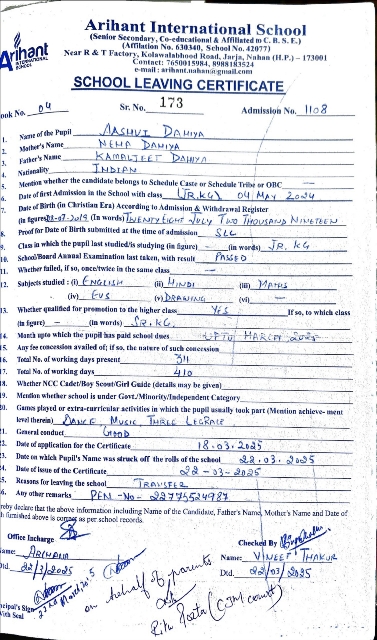 Arihant International School
(Senior Secondary, Co-educational & Affiliated to C.B.S.E.)
(Affiliation No. 630340, School No. 42077)
Near R & T Factory, Kolawalabhood Road, Jarja, Nahan (H.P.) - 173001
Contact: 7650015984, 8988183524
e-mail: arihant.nahan@gmail.com
Arihant
INTERNATIONAL
SCHOOL
SCHOOL LEAVING CERTIFICATE
ook No. 04 Sr. No. 173 Admission No. 1108
1. Name of the Pupil AASHVI DAHIYA
2. Mother's Name NEHA DAHIYA
3. Father's Name KAMALJEET DAHIYA
4. Nationality INDIAN
5. Mention whether the candidate belongs to Schedule Caste or Schedule Tribe or OBC —
6. Date of first Admission in the School with class (JR.KG) 04 MAY 2024
7. Date of Birth (in Christian Era) According to Admission & Withdrawal Register
(in figures) 28-07-2019 (In words) TWENTY EIGHT JULY TWO THOUSAND NINETEEN
8. Proof for Date of Birth submitted at the time of admission SLC
9. Class in which the pupil last studied/is studying (in figure) — (in words) JR. KG
10. School/Board Annual Examination last taken, with result PASSED
11. Whether failed, if so, once/twice in the same class —
12. Subjects studied : (i) ENGLISH (ii) HINDI (iii) MATHS
(iv) EVS (v) DRAWING (vi) —
13. Whether qualified for promotion to the higher class YES If so, to which class
(in figure) — (in words) SR. KG.
14. Month upto which the pupil has paid school dues UPTO MARCH 2025
15. Any fee concession availed of; if so, the nature of such concession
16. Total No. of working days present
17. Total No. of working days 410
18. Whether NCC Cadet/Boy Scout/Girl Guide (details may be given)
19. Mention whether school is under Govt./Minority/Independent Category
20. Games played or extra-curricular activities in which the pupil usually took part (Mention achieve- ment
level therein) DANCE, MUSIC, THREE
21. General conduct GOOD
22. Date of application for the Certificate 18.03.2025
23. Date on which Pupil's Name was struck off the rolls of the school 22.03.2025
24. Date of issue of the Certificate 22-03-2025
25. Reasons for leaving the school TRANSFER
26. Any other remarks PEN -No- 22775524987
reby declare that the above information including Name of the Candidate, Father's Name, Mother's Name and Date of
h furnished above is correct as per school records.
Office Incharge Checked By
ame: Name: VINEET THAKUR
Dtd. 22/3/2025 Dtd. 22/03/2025
on behalf of parents
ncipal's Sign
With Seal